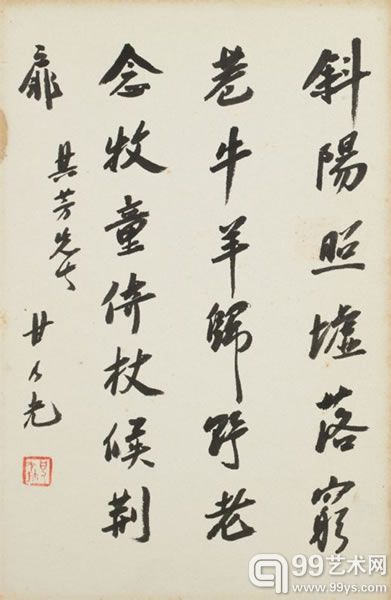 斜陽照墟落窮
巷牛羊歸野老
念牧童倚杖候荊
扉 其芳先生 甘乃光
99艺术网
www.99ys.com